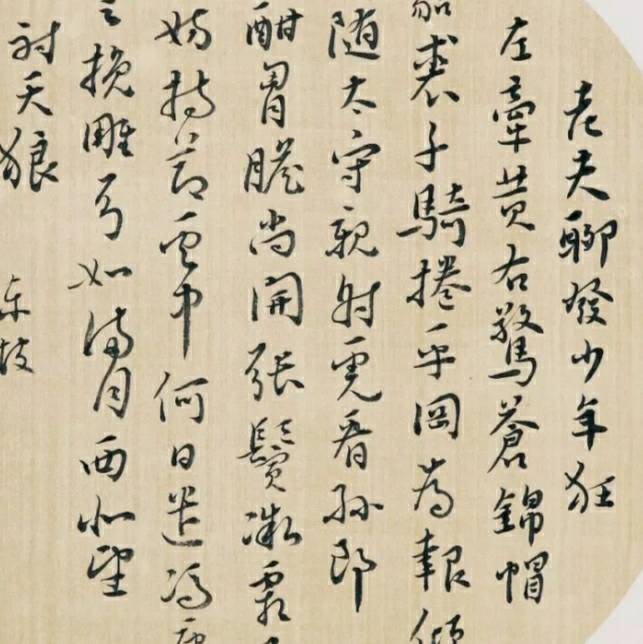 老夫聊發少年狂
左牽黄右擎蒼錦帽
裘千騎捲平岡為報傾
随太守親射虎看孫郎
酣胷膽尚開張鬢微霜
妨持節雲中何日遣馮
挽雕弓如滿月西北望
射天狼
東坡